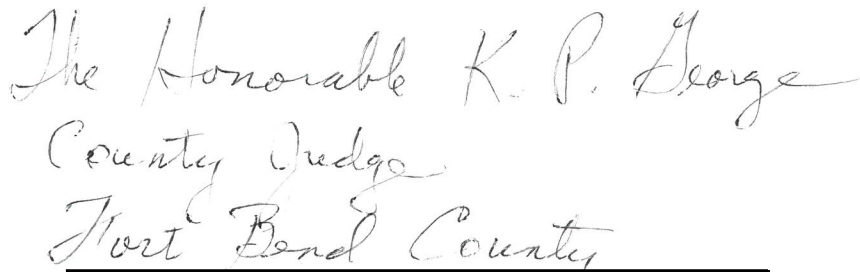 The Honorable K. P. George
County Judge
Fort Bend County